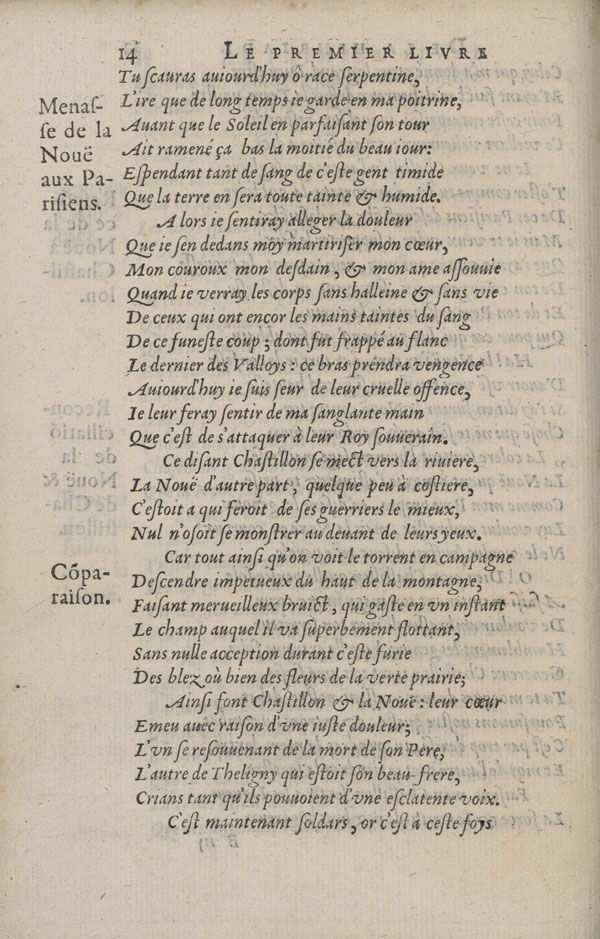 14 LE PREMIER LIVRE
Tu scauras auiourd'huy ô race serpentine,
L'ire que de long temps ie garde en ma poitrine,
Auant que le Soleil en parfaisant son tour
Ait ramené ça bas la moitié du beau iour:
Espendant tant de sang de c'este gent timide
Que la terre en sera toute tainte & humide.
A lors ie sentiray alleger la douleur
Que ie sen dedans moy martiriser mon cœur,
Mon couroux mon desdain, & mon ame assouuie
Quand ie verray les corps sans halleine & sans vie
De ceux qui ont encor les mains taintes du sang
De ce funeste coup; dont fut frappé au flanc
Le dernier des Valloys: ce bras prendra vengence
Auiourd'huy ie suis seur de leur cruelle offence,
Ie leur feray sentir de ma sanglante main
Que c'est de s'attaquer à leur Roy souuerain.
Ce disant Chastillon se mect vers la riuiere,
La Nouë d'autre part, quelque peu à costiere,
C'estoit a qui feroit de ses guerriers le mieux,
Nul n'osoit se monstrer au deuant de leurs yeux.
Car tout ainsi qu'on voit le torrent en campagne
Descendre impetueux du haut de la montagne,
Faisant merueilleux bruict, qui gaste en vn instant
Le champ auquel il va superbement flottant,
Sans nulle acception durant c'este furie
Des blez où bien des fleurs de la verte prairie;
Ainsi font Chastillon & la Nouë: leur cœur
Emeu auec raison d'vne iuste douleur;
L'vn se resouuenant de la mort de son Pere,
L'autre de Theligny qui estoit son beau-frere,
Crians tant qu'ils pouuoient d'vne esclatente voix.
C'est maintenant soldars, or c'est à ceste foys
Menas-
se de la
Nouë
aux Pa-
risiens.
Cōpa-
raison.